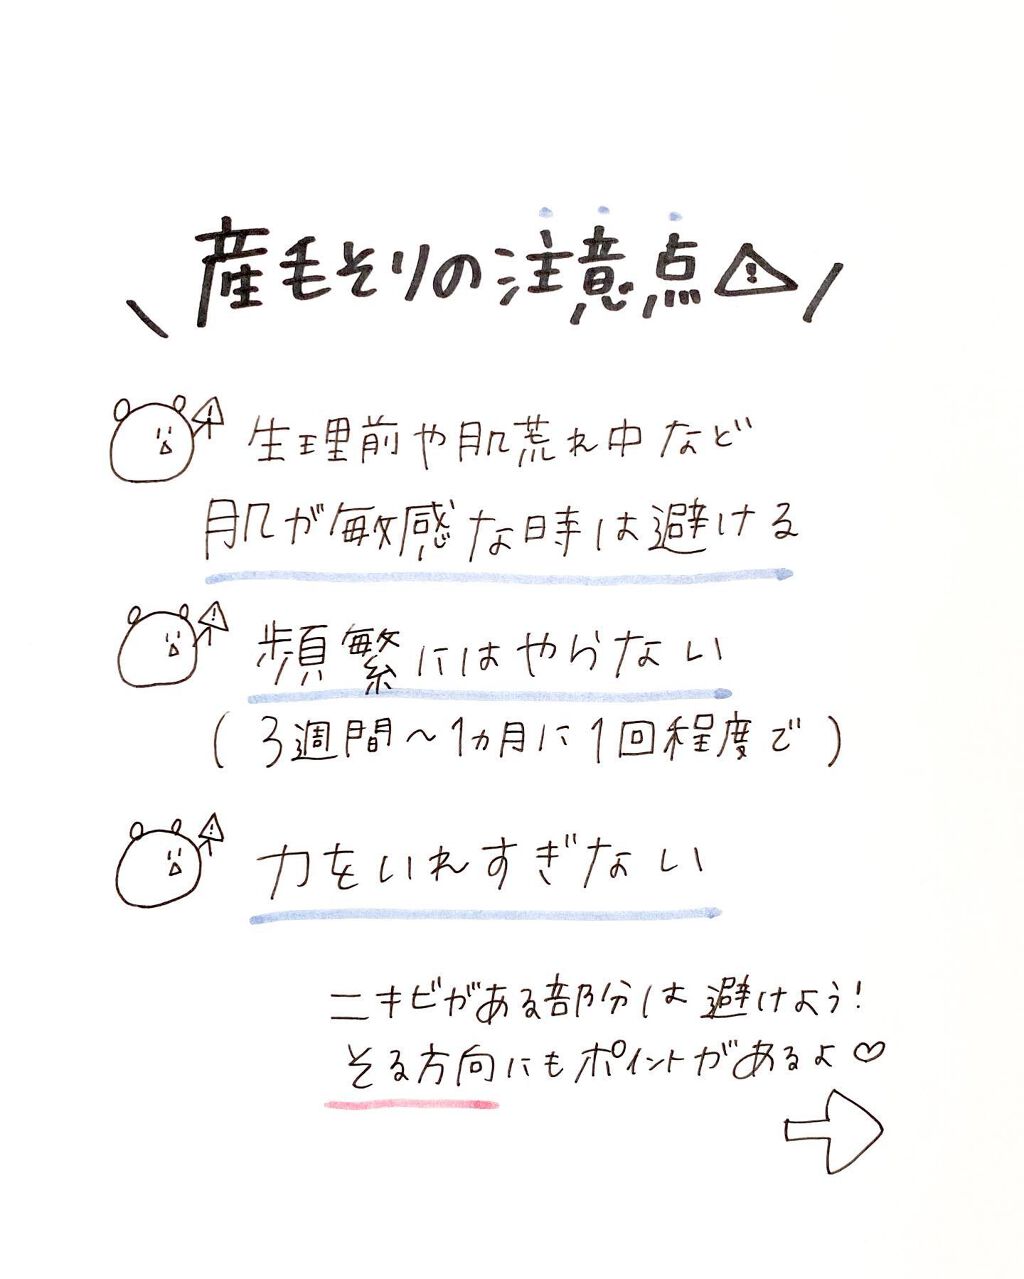 \産毛そりの注意点⚠/
生理前や肌荒れ中など
肌が敏感な時は避ける
頻繁にはやらない
(3週間〜1ヵ月に1回程度で)
力をいれすぎない
ニキビがある部分は避けよう!
そる方向にもポイントがあるよ♡